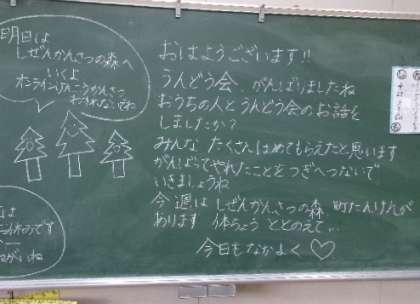 明日は
しぜんかんさつの森へ
いくよ
オンライン
おはようございます!!
うんどう会、がんばりましたね
おうちの人とうんどう会のお話を
しましたか?
みんな たくさんほめてもらえたと思います
がんばってやれたことをつぎへつないで
いきましょうね
今週は しぜんかんさつの森 町たんけんが
あります 体ちょう ととのえて…
今日もなかよく♡